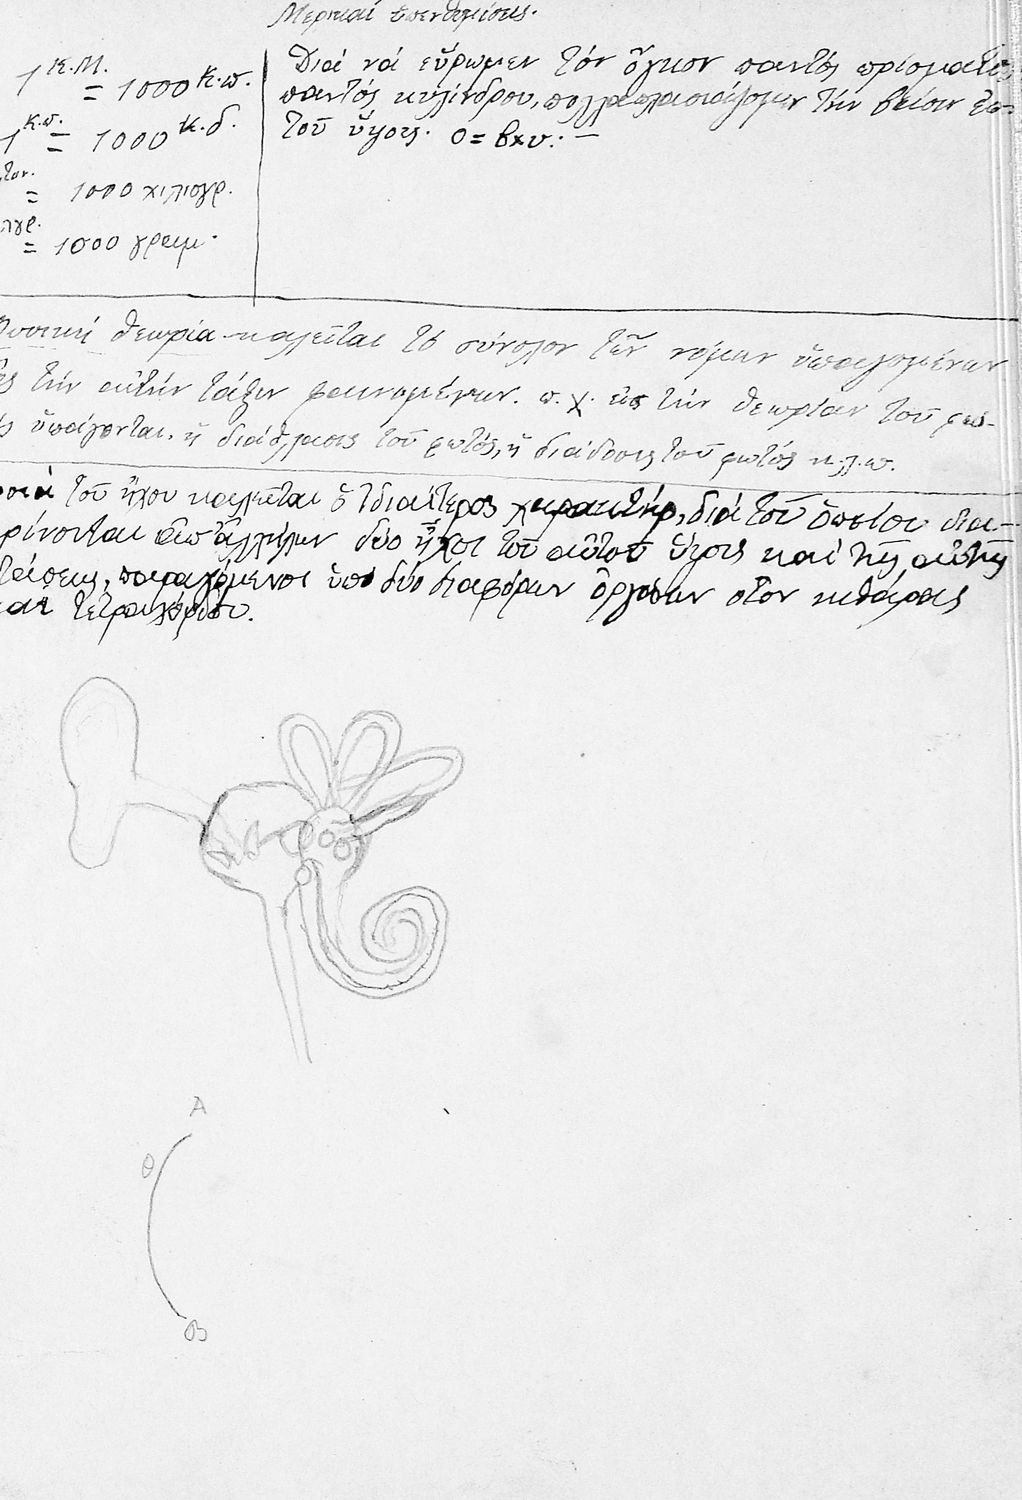 Μερικαί ὑπενθυμίσεις.
1 κ.μ. = 1000 κ.π.
1 κ.π. = 1000 κ.δ.
= 1000 χιλιογρ.
= 1000 γραμ.
Διά νά εὕρωμεν τόν ὄγκον παντός πρίσματος
παντός κυλίνδρου, πολλαπλασιάζομεν τήν βάσιν ἐπί
τοῦ ὕψους. Ο = β×υ: —
Φυσική θεωρία καλεῖται τό σύνολον τῶν νόμων ὑπαγομένων
τήν αὐτήν τάξιν φαινομένων. π.χ. εἰς τήν θεωρίαν τοῦ φω-
ὑπάγονται, ἡ διάθλασις τοῦ φωτός, ἡ διάδοσις τοῦ φωτός κ.λ.π.
τοῦ ἤχου καλεῖται ὁ ἰδιαίτερος χαρακτήρ, διά τοῦ ὁποίου δια-
κρίνονται ἀπ' ἀλλήλων δύο ἦχοι τοῦ αὐτοῦ ὕψους καί τῆς αὐτῆς
ἐντάσεως, παραγόμενοι ὑπό δύο διαφόρων ὀργάνων οἷον κιθάρας
καί τετραχόρδου.
Α
Θ
Β